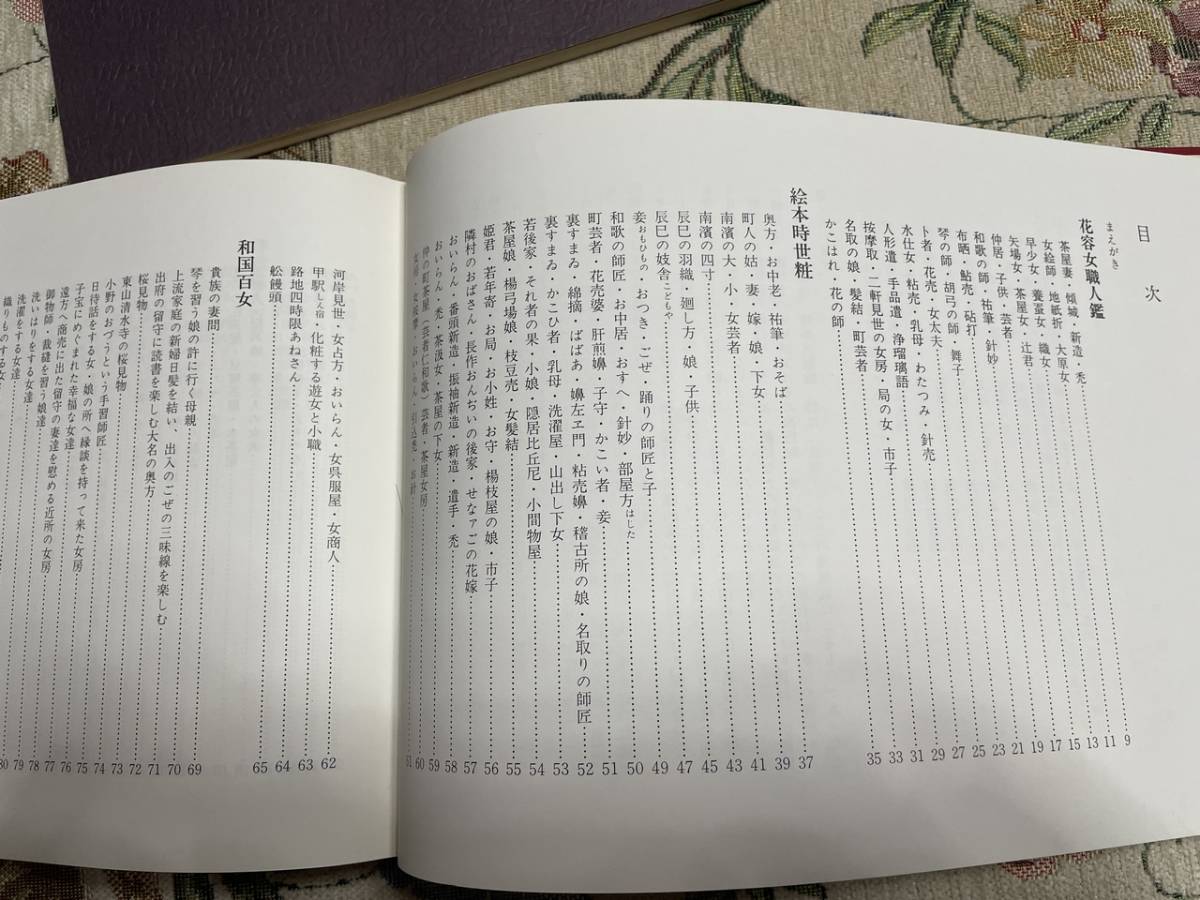 目次
まえがき
花容女職人鑑
茶屋妻・傾城・新造・禿 9
女絵師・地紙折・大原女 11
早少女・養蚕女・織女 13
矢場女・茶屋女・辻君 15
仲居・子供・芸者 17
和歌の師・祐筆・針妙 19
布晒・鮎売・砧打 21
琴の師・胡弓の師・舞子 23
卜者・花売・女太夫 25
水仕女・粘売・乳母・わたつみ・針売 27
人形遣・手品遣・浄瑠璃語 29
按摩取・二軒見世の女房・局の女・市子 31
名取の娘・髪結・町芸者 33
かこはれ 花の師 35
絵本時世粧
奥方・お中老・祐筆・おそば 37
町人の姑・妻・嫁・娘・下女 39
南濱の大・小・女芸者 41
南濱の四寸 43
辰巳の羽織・廻し方・娘・子供 45
辰巳の妓舎こどもや 47
妾おもひもの・おつき・ごぜ・踊りの師匠と子 49
和歌の師匠・お中居・おすへ・針妙・部屋方はした 50
町芸者・花売婆・肝煎嬶・子守・かこい者・妾 51
裏すまゐ・綿摘・ばばあ・嬶左ヱ門・粘売嬶・稽古所の娘・名取りの師匠 52
裏すまゐ・かこひ者・乳母・洗濯屋・山出し下女 53
若後家・それ者の果・小娘・隠居比丘尼・小間物屋 54
茶屋娘・楊弓場娘・枝豆売・女髪結 55
姫君・若年寄・お局・お小姓・お守・楊枝屋の娘・市子 56
隣村のおばさん・長作おんぢいの後家・せなァごの花嫁 57
おいらん・番頭新造・振袖新造・新造・遣手・禿 58
おいらん・禿・茶汲女・茶屋の下女 59
仲の町茶屋（芸者仁和歌）芸者・茶屋女房 60
女房・女按摩・おいらん・引込禿・お針 61
河岸見世・女占方・おいらん・女呉服屋・女商人 62
甲駅しん宿・化粧する遊女と小職 63
路地四時限あねさん 64
舩饅頭 65
和国百女
貴族の妻問 69
琴を習う娘の許に行く母親 70
上流家庭の新婦日髪を結い、出入のごぜの三味線を楽しむ 71
出府の留守に読書を楽しむ大名の奥方 72
桜見物 73
東山清水寺の桜見物 74
小野のおづうという手習師匠 75
日待話をする女・娘の所へ縁談を持って来た女房 76
子宝にめぐまれた幸福な女達 77
遠方へ商売に出た留守の妻達を慰める近所の女房 78
御物師・裁縫を習う娘達 79
洗いはりをする女達 80
洗濯をする女達
織りものする女